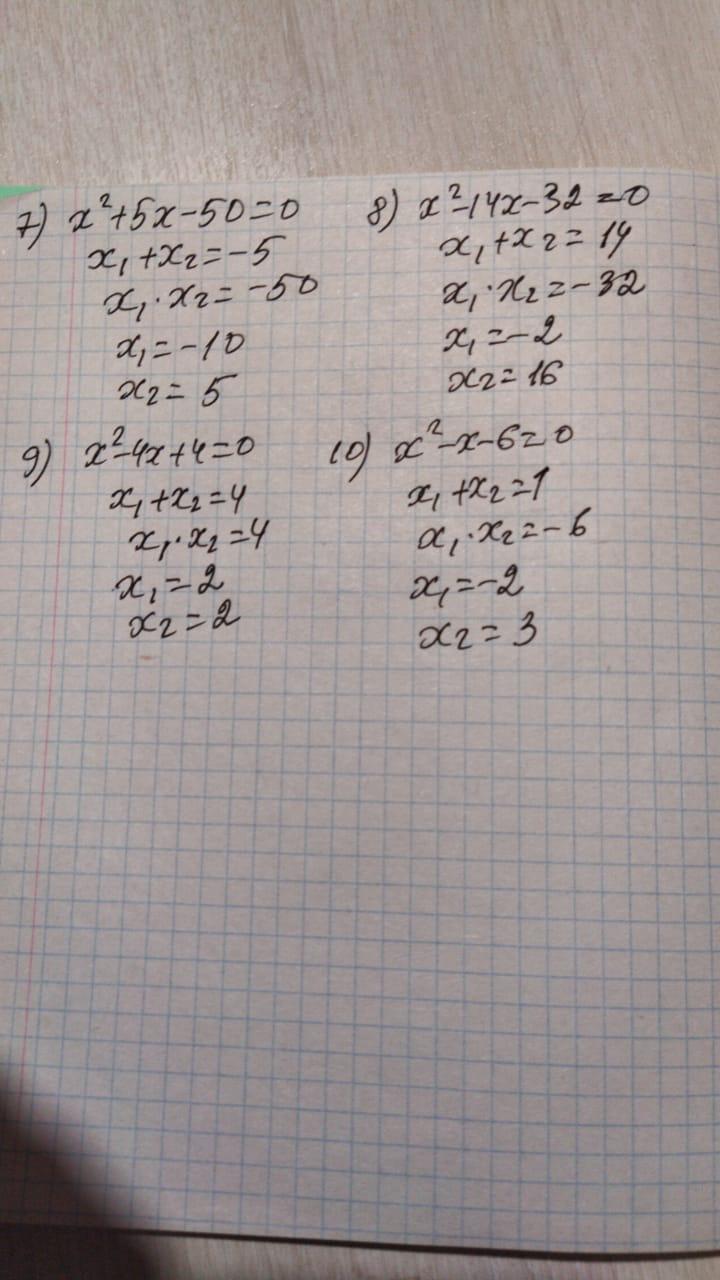 7) x²+5x-50=0
x₁+x₂=-5
x₁·x₂=-50
x₁=-10
x₂=5
8) x²-14x-32=0
x₁+x₂=14
x₁·x₂=-32
x₁=-2
x₂=16
9) x²-4x+4=0
x₁+x₂=4
x₁·x₂=4
x₁=2
x₂=2
10) x²-x-6=0
x₁+x₂=1
x₁·x₂=-6
x₁=-2
x₂=3